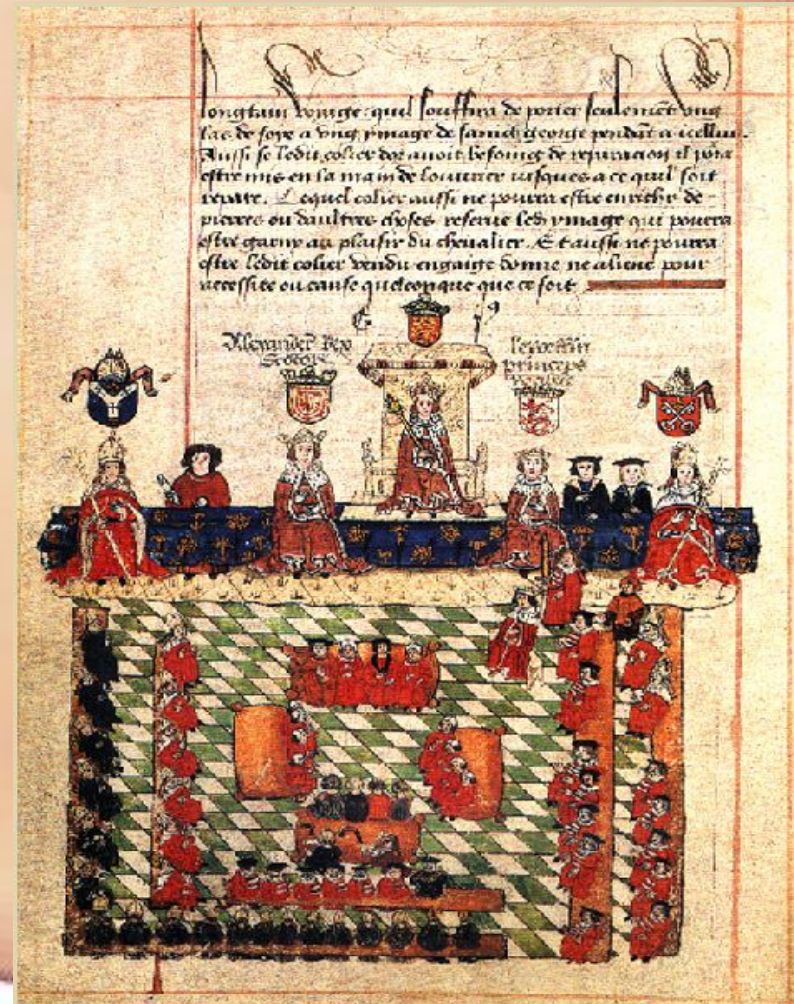 longtain voyaige: quil souffira de porter seulement vng
las de soye a vng ymage de sainct george pendāt a icelluy.
Aussi se ledit colier dor auoit besoing de reparacion il pora
estre mis en la main de louurier iusques a ce quil soit
repare. Lequel colier aussi ne pourra estre enrichy de
pierres ou daultres choses reserue ledt ymage qui pourra
estre garny au plaisir du cheualier. Et aussi ne pourra
estre ledit colier vendu engaige donne ne aliene pour
necessite ou cause quelconque que ce soit
Alexander Rex
Scotorū
princeps